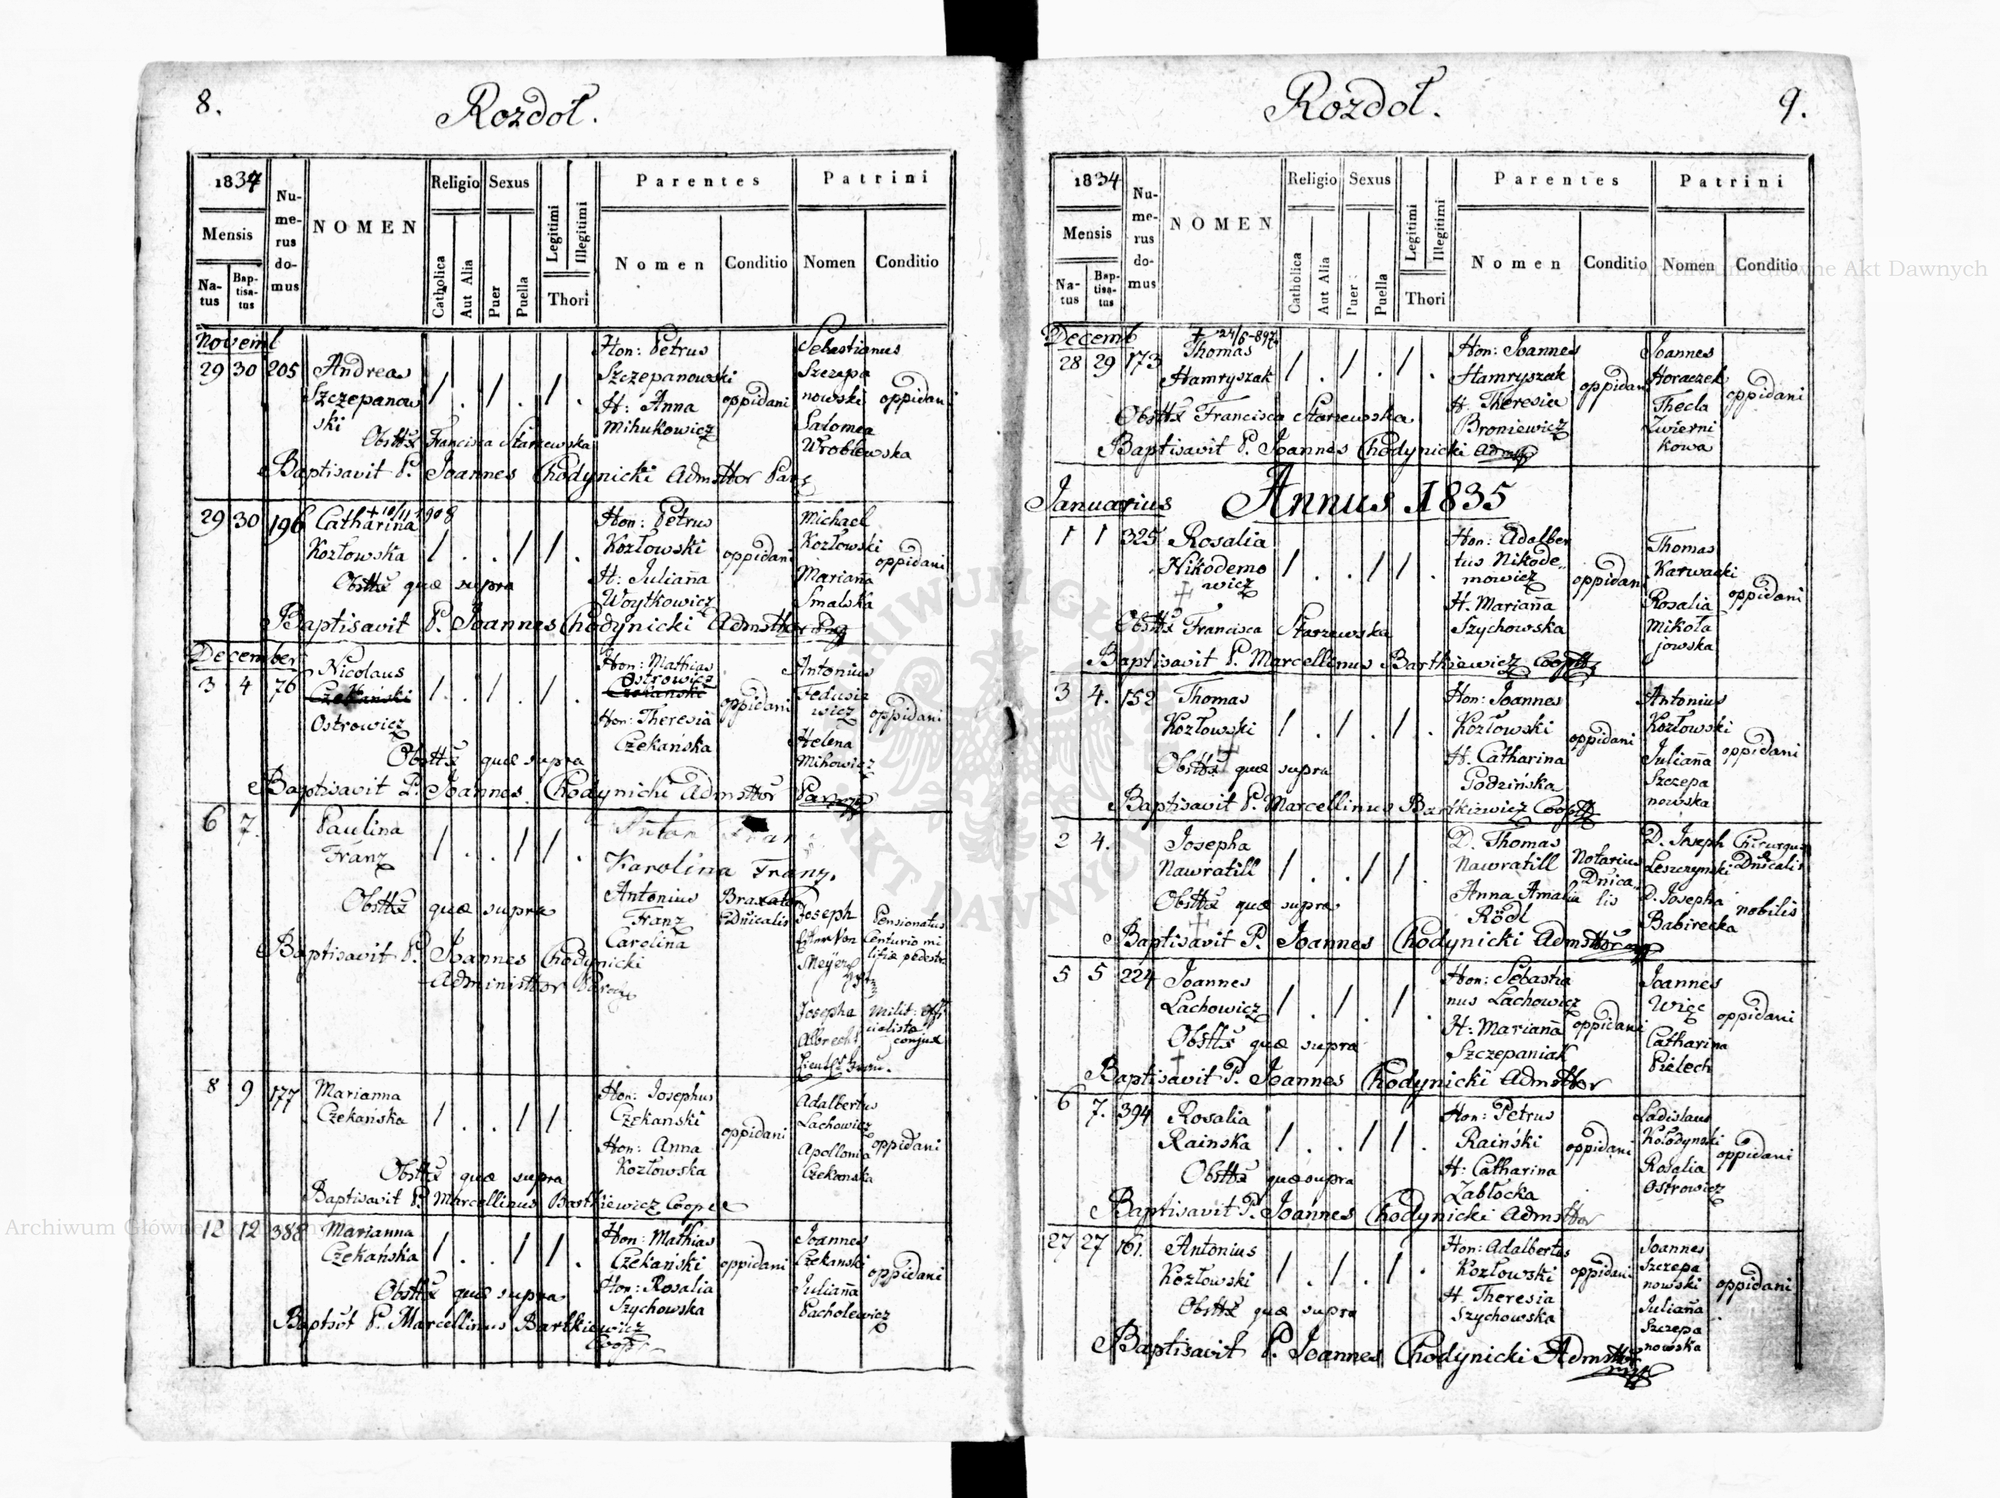 8.
Rozdoł.
1834
Mensis
Natus
Baptisatus
Numerus domus
NOMEN
Religio
Catholica
Aut Alia
Sexus
Puer
Puella
Legitimi
Illegitimi
Thori
Parentes
Nomen
Conditio
Patrini
Nomen
Conditio
Novemb
29 30 205 Andreas
Szczepanow
ski
Hon: Petrus
Szczepanowski
H: Anna
Mihukowicz
oppidani
Sebastianus
Szczepa
nowski
Salomea
Wroblewska
oppidani
Obsttx Francisca Starzewska
Baptisavit P. Joannes Chodynicki Admsttor
29 30 196 Catharina
+ 10/11 1908
Kozłowska
Hon: Petrus
Kozłowski
H: Julianna
Woytkowicz
oppidani
Michael
Kozłowski
Marianna
Smalska
oppidani
Obsttx quæ supra
Baptisavit P. Joannes Chodynicki Admsttor
December
3 4 76 Nicolaus
Czekański
Ostrowicz
Hon: Mathias
Ostrowicz
Hon: Theresia
Czekańska
oppidani
Antonius
Fedusie
wicz
Helena
Mihowicz
oppidani
Obsttx quæ supra
Baptisavit P. Joannes Chodynicki Admsttor
6 7. Paulina
Franz
Karolina Franz.
Antonius
Franz
Carolina
Braxator
Dnicalis
Joseph
von
Meyer
Josepha
Albrecht
Pensionatus
Centurio mi
litiæ pedestr
Milit: offi
cialista
conjux
Obsttx quæ supra
Baptisavit P. Joannes Chodynicki
Administtor
8 9 177 Marianna
Czekańska
Hon: Josephus
Czekański
Hon: Anna
Kozłowska
oppidani
Adalbertus
Lachowicz
Apollonia
Czekanska
oppidani
Obsttx quæ supra
Baptisavit P. Marcellinus Bartkiewicz Coope
12 12 388 Marianna
Czekańska
Hon: Mathias
Czekański
Hon: Rosalia
Szychowska
oppidani
Joannes
Czekanski
Julianna
Pacholewicz
oppidani
Obsttx quæ supra
Baptsvt P. Marcellinus Bartkiewicz
Coop
9.
Rozdoł.
1834
Mensis
Natus
Baptisatus
Numerus domus
NOMEN
Religio
Catholica
Aut Alia
Sexus
Puer
Puella
Legitimi
Illegitimi
Thori
Parentes
Nomen
Conditio
Patrini
Nomen
Conditio
Decemb
+ 24/6-897
28 29 173 Thomas
Hamryszak
Hon: Joannes
Hamryszak
H. Theresia
Broniewicz
oppidani
Joannes
Horaczek
Thecla
Zwierni
kowa
oppidani
Obsttx Francisca Starzewska
Baptisavit P. Joannes Chodynicki Admsttor
Januarius Annus 1835
1 1 325 Rosalia
Nikodemo
wicz
Hon: Adalber
tus Nikode
mowicz
H. Marianna
Szychowska
oppidani
Thomas
Karwacki
Rosalia
Mikoła
jowska
oppidani
Obsttx Francisca Starzewska
Baptisavit P. Marcellinus Bartkiewicz Cooptt
3 4. 152 Thomas
Kozłowski
Hon: Joannes
Kozłowski
H. Catharina
Godzińska
oppidani
Antonius
Kozłowski
Julianna
Szczepa
nowska
oppidani
Obsttx quæ supra
Baptisavit P. Marcellinus Bartkiewicz Cooptt
2 4. Josepha
Nawratill
D. Thomas
Nawratill
Anna Amalia
Rödl
Notarius
Dnica
lis
D. Joseph
Leszczynski
D. Josepha
Babirecka
Chirurgus
Dnicalis
nobilis
Obsttx quæ supra
Baptisavit P. Joannes Chodynicki Admsttor
5 5 224 Joannes
Lachowicz
Hon: Sebastia
nus Lachowicz
H: Marianna
Szczepaniak
oppidani
Joannes
Więc
Catharina
Pielech
oppidani
Obsttx quæ supra
Baptisavit P. Joannes Chodynicki Admsttor
6 7. 394 Rosalia
Rainska
Hon: Petrus
Raiński
H: Catharina
Zabłocka
oppidani
Ladislaus
Kołodynski
Rosalia
Ostrowicz
oppidani
Obsttx quæ supra
Baptisavit P. Joannes Chodynicki Admsttor
27 27 161. Antonius
Kozłowski
Hon: Adalbertus
Kozłowski
H. Theresia
Szychowska
oppidani
Joannes
Szczepa
nowski
Julianna
Szczepa
nowska
oppidani
Obsttx quæ supra
Baptisavit P. Joannes Chodynicki Admsttor
ARCHIWUM GŁÓWNE AKT DAWNYCH
Archiwum Główne Akt Dawnych
Archiwum Główne Akt Dawnych